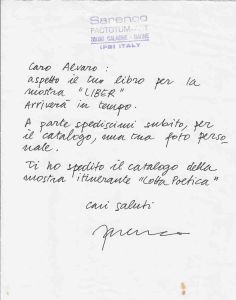 Sarenco
FACTOTUM-ART
CALAONE - BAONE
(PD) ITALY
Caro Alvaro:
aspetto il tuo libro per la
mostra "LIBER"
Arriverà in tempo.
A parte spediscimi subito, per
il catalogo, una tua foto perso-
nale.
Ti ho spedito il catalogo della
mostra itinerante "Loba Poetica"
Cari saluti
Sarenco